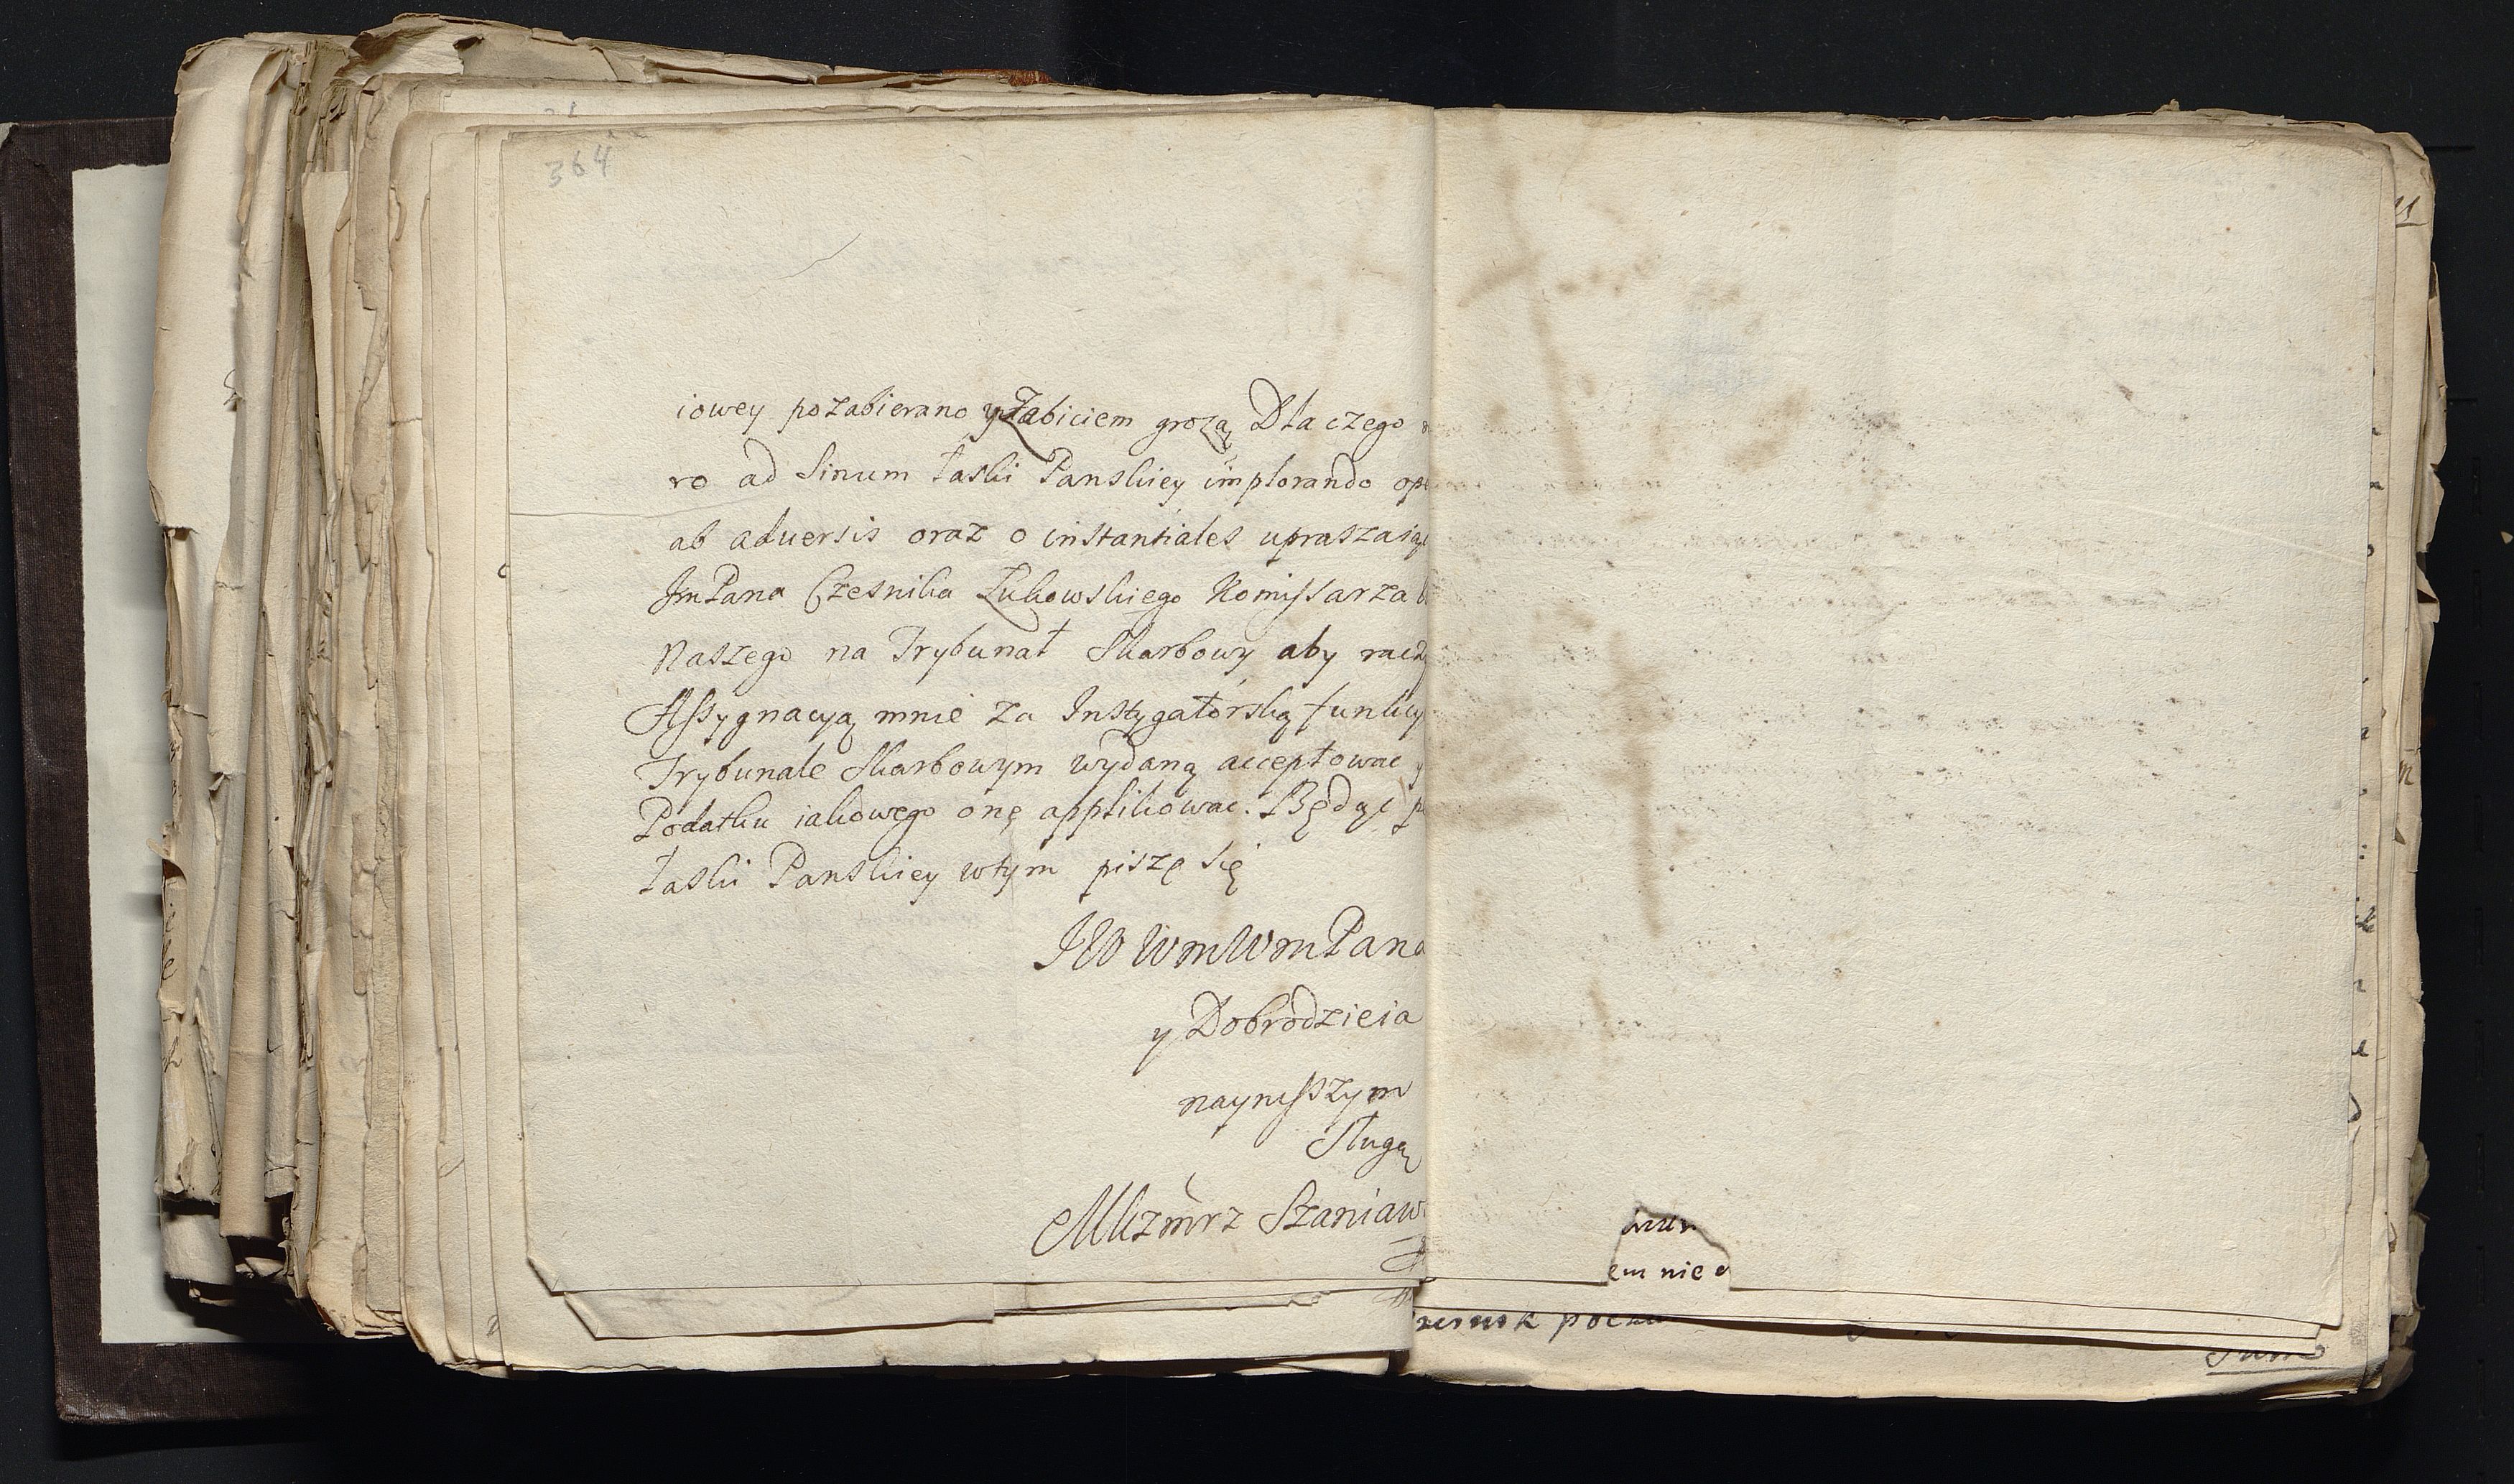 364
iowey pozabierano y Zabiciem grozą Dla czego
ro ad Sinum łaski Panskiey implorando ope
ab adversis oraz o instantiales upraszaiąc
Jm Pana Czesnika Łukowskiego Komissarza
Naszego na Trybunał Skarbowy aby raczy
Assygnacyą mnie za Instygatorską funkcy
Trybunale Skarbowym wydaną acceptowac y
Podatku iakowego onę applikowac. Będąc
łaski Panskiey wtym piszę się
JW WmWmPana
y Dobrodzieia
naynisszym
Sługą
Mkzmrz Szaniaw
em nie